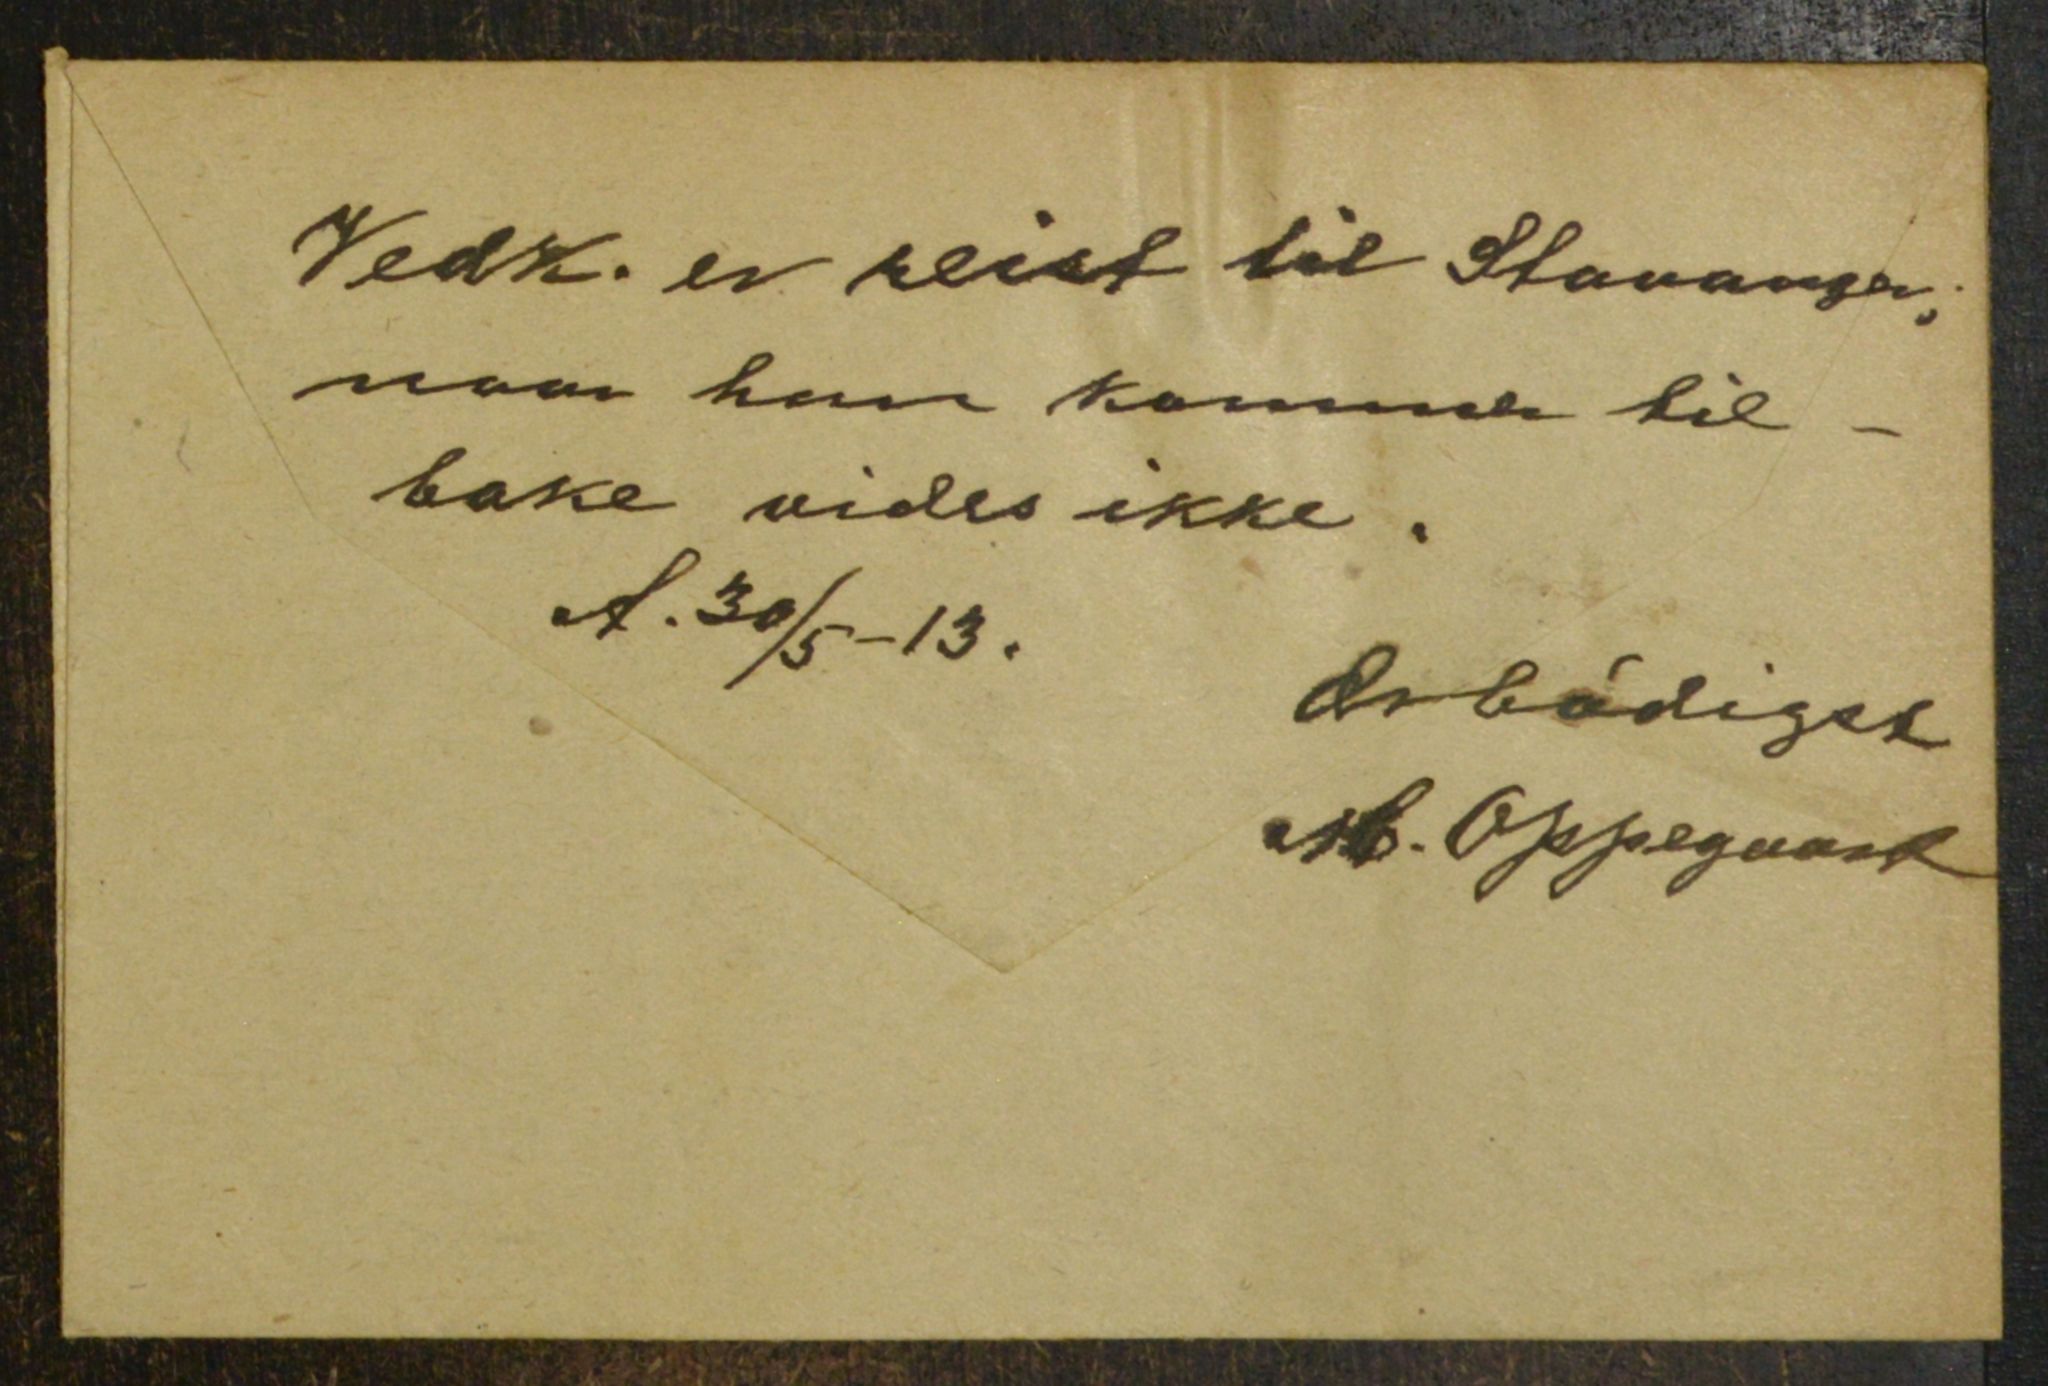 Vedk. er reist til Stavanger;
naar han kommer til-
bake vides ikke.
A. 30/5-13.
Ærbødigst
M. Oppegaard